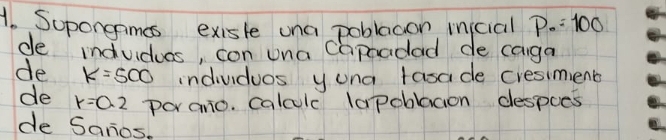 1. Supongamos existe una poblacion inicial P₀=100
de individuos, con una Capacidad de carga
de K=500 individuos y una tasa de cresimiento
de r=0.2 por año. Calcule la poblacion despues
de 5años.